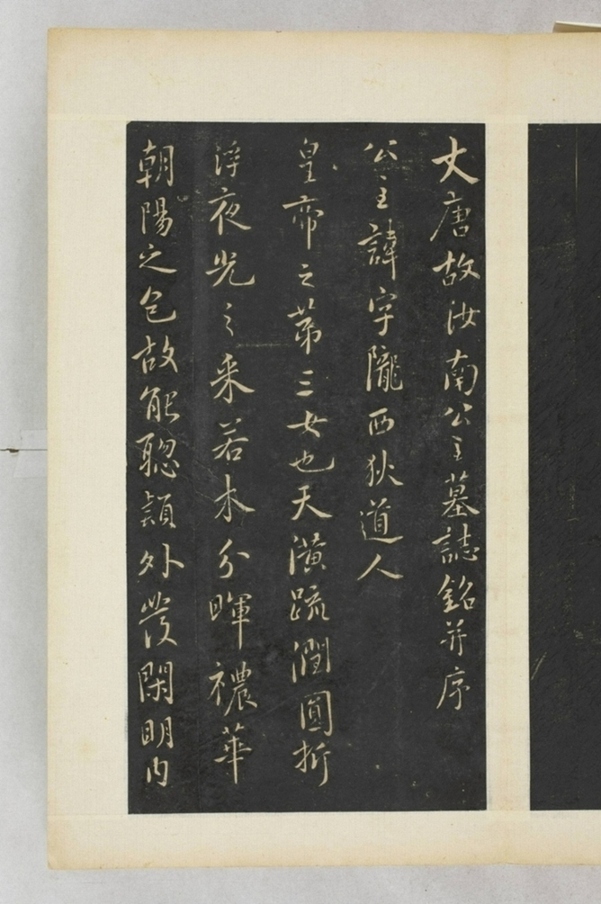 大唐故汝南公主墓誌銘并序
公主諱字隴西狄道人
皇帝之苐三女也天潢疏潤圓折
浮夜光之采若木分暉穠華
朝陽之色故能聦穎外發閑明内